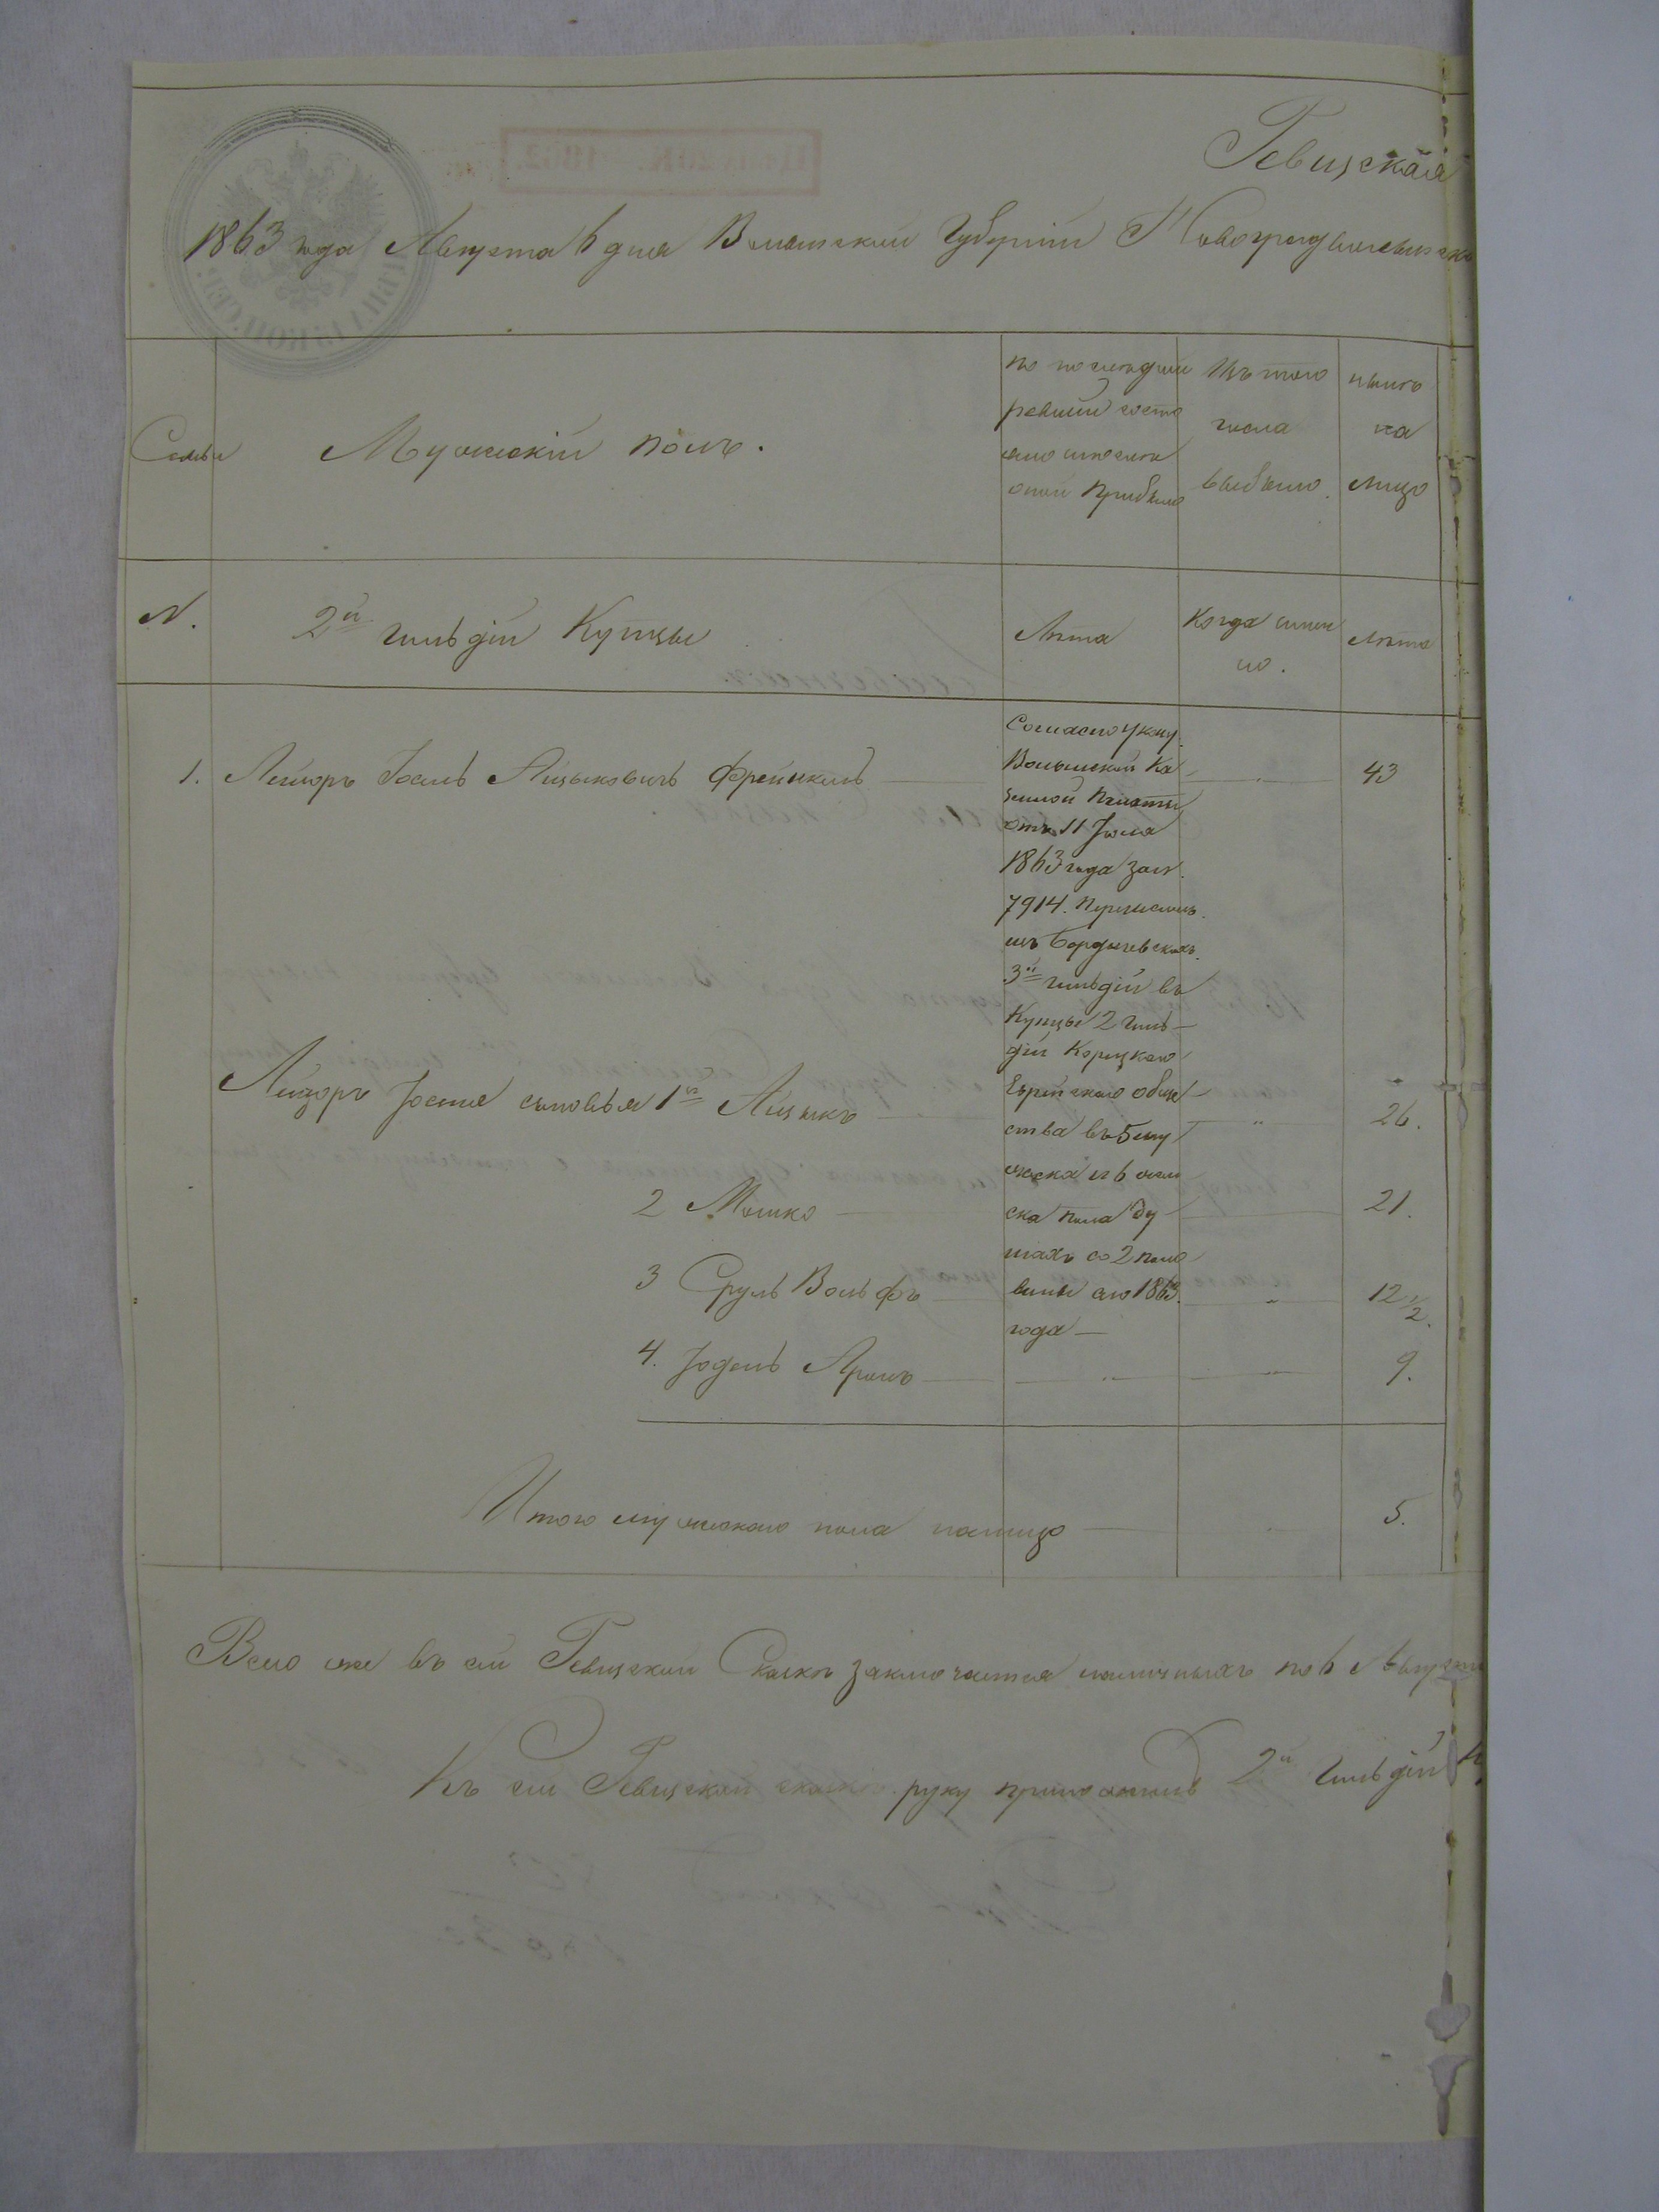 Ревизская
1863 года Августа 6 дня Волынской Губерніи Новоградволынско
Семьи
Мужескій полъ.
по последней
ревизіи состо
яло и после
оной прибыло
Изъ того
числа
выбыло.
ныне
на
лицо
N.
2й гильдіи Купцы
Лѣта
Когда имен
но.
Лѣта
1. Лейзоръ Іосель Айзыковичъ Френкель
43
Согласно Указу
Волынской Ка
зенной Палаты
отъ 11 Іюля
1863 года за N.
7914. перечисленъ
изъ Бердичевскихъ
3й гильдіи въ
Купцы 2 гиль-
діи Корецкаго
Еврейскаго обще
ства въ 5 му
жеска и 6 жен
ска пола ду
шахъ со 2 поло
вины сего 1863.
года
Лейзоръ Іоселя сыновья 1й Айзыкъ
26.
2 Мошко
21.
3 Сруль Вольфъ
12 1/2.
4. Іодель Аронъ
9.
Итого мужескаго пола налицо
5.
Всего же въ сей Ревизской Сказкѣ заключается наличныхъ по 6 Августа
Къ сей Ревизской сказкѣ руку приложилъ 2й гильдіи К